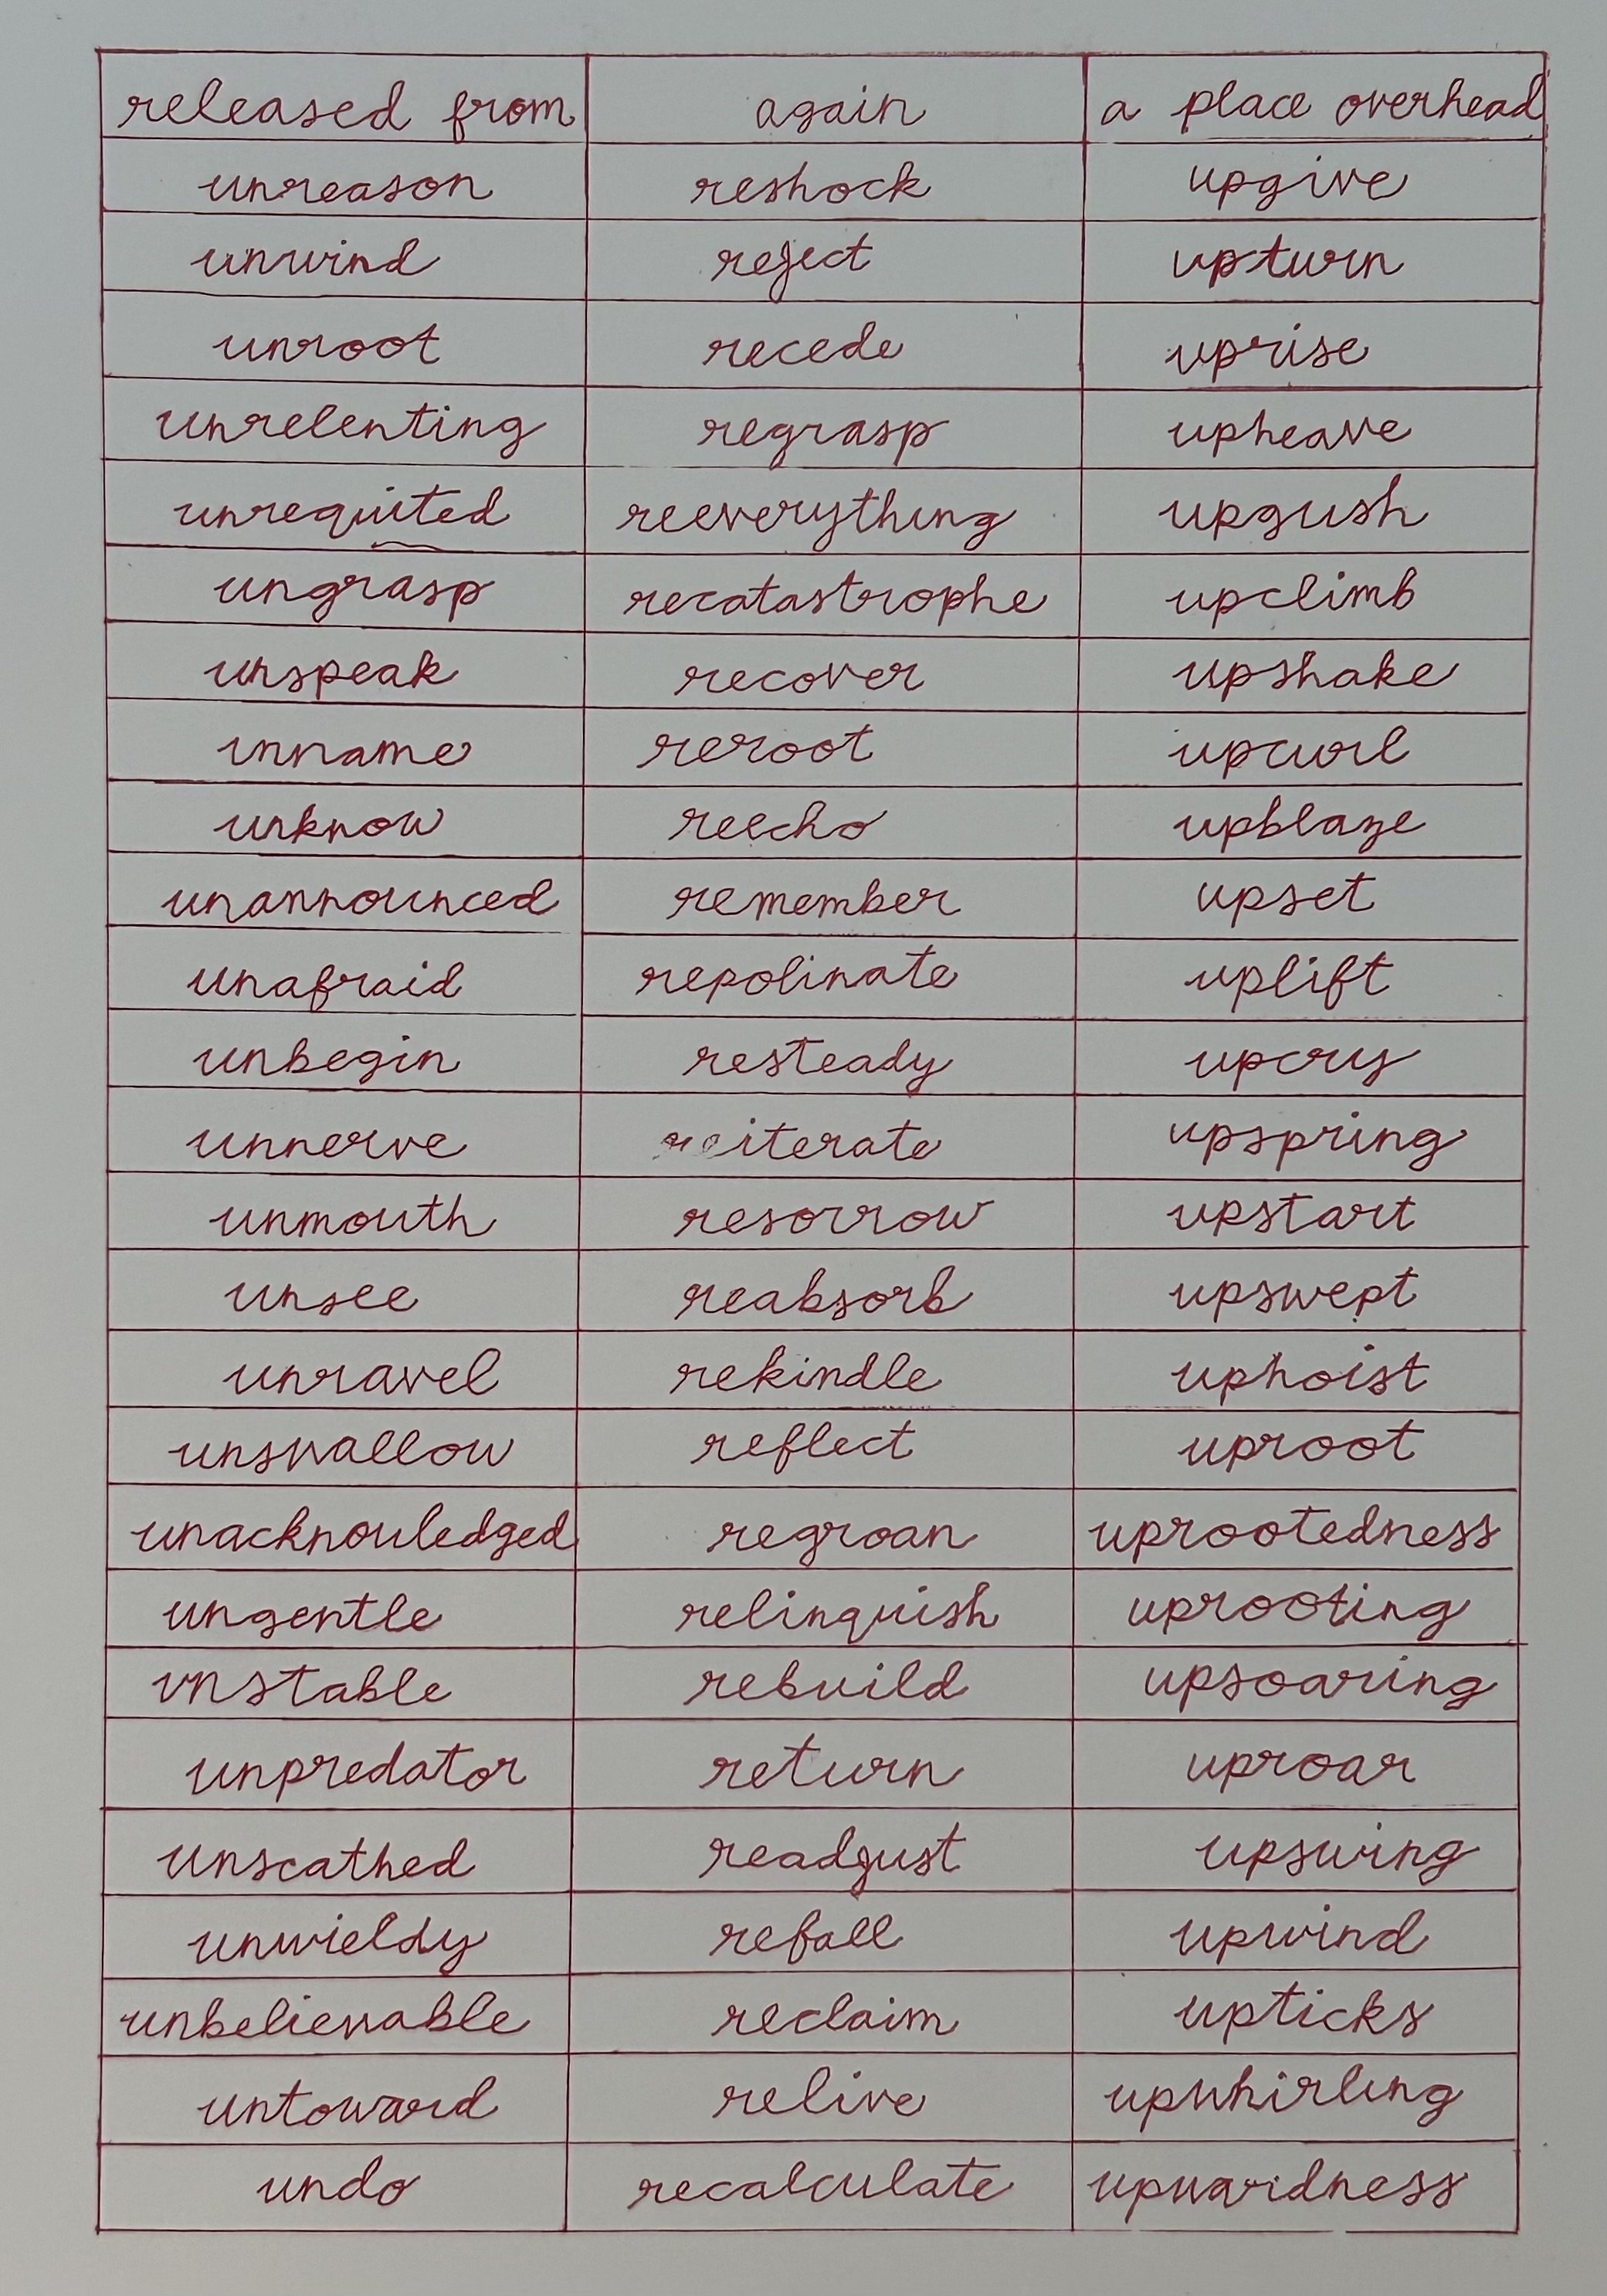 released from again a place overhead
unreason reshock upgive
unwind reject upturn
unroot recede uprise
unrelenting regrasp upheave
unrequited reeverything upgush
ungrasp recatastrophe upclimb
unspeak recover upshake
unname reroot upcurl
unknow reecho upblaze
unannounced remember upset
unafraid repolinate uplift
unbegin resteady upcry
unnerve reiterate upspring
unmouth resorrow upstart
unsee reabsorb upswept
unravel rekindle uphoist
unswallow reflect uproot
unacknowledged regroan uprootedness
ungentle relinquish uprooting
unstable rebuild upsoaring
unpredator return uproar
unscathed readjust upswing
unwieldy refall upwind
unbelievable reclaim upticks
untoward relive upwhirling
undo recalculate upwardness